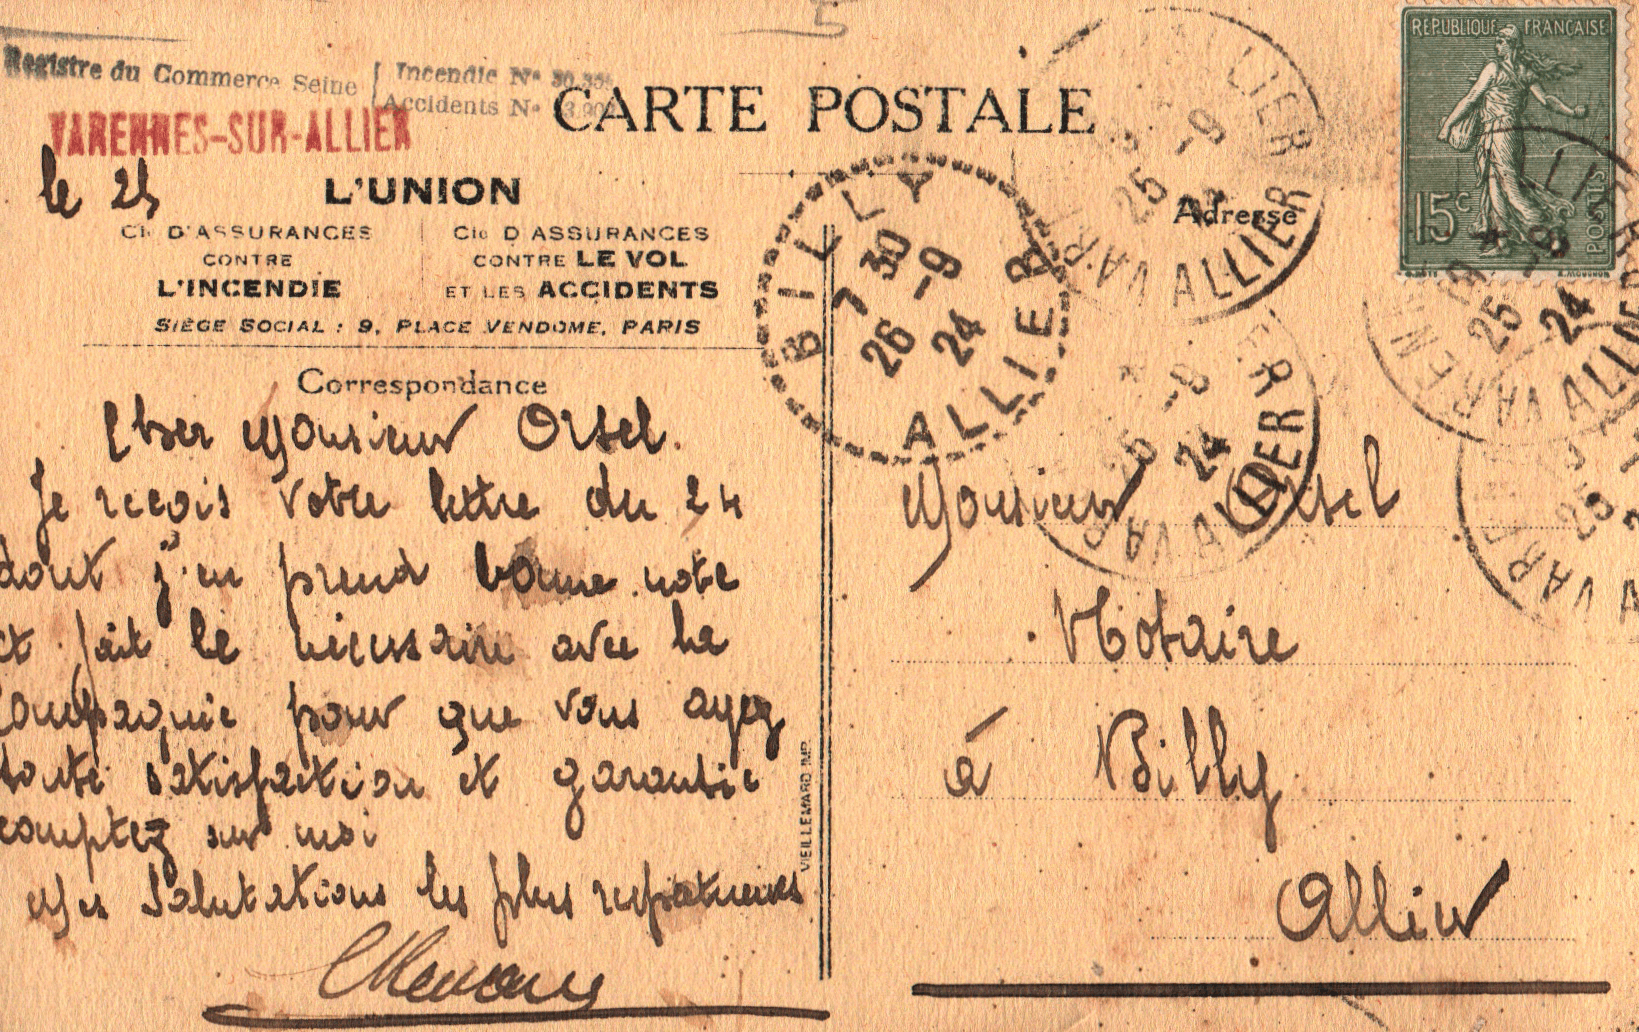 Registre du Commerce Seine
Incendie Nº
Accidents Nº
CARTE POSTALE
VARENNES-SUR-ALLIER
le 25
L'UNION
Cie D'ASSURANCES
CONTRE
L'INCENDIE
Cie D'ASSURANCES
CONTRE LE VOL
ET LES ACCIDENTS
SIÈGE SOCIAL : 9, PLACE VENDOME, PARIS
Correspondance
Cher Monsieur Orsel.
Je reçois votre lettre du 24
dont j'en prend bonne note
et fait le nécessaire avec la
Compagnie pour que vous ayez
toute satisfaction et garantie
comptez sur moi
Mes Salutations les plus respectueuses
VIEILLEMARD IMP.
Adresse
Monsieur Orsel
Notaire
à Billy
Allier
REPUBLIQUE FRANÇAISE
15c
POSTES
BILLY
7 30
26 -9
24
ALLIER
25 -9
24
VAR ALLIER
25 -9
24
VAR ALLIER
25
24
VAREN ALLIER
25
VARE